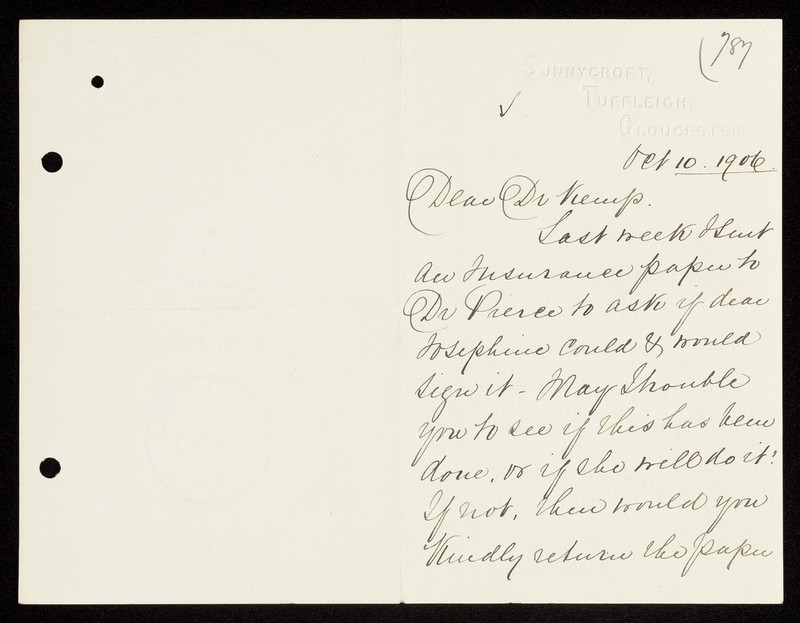 787
SUNNYCROFT,
TUFFLEIGH,
GLOUCESTER
Oct 10. 1906.
Dear Dr Kemp.
Last week I sent
an Insurance paper to
Dr Pierce to ask if dear
Josephine could & would
sign it - May I trouble
you to see if this has been
done, or if she will do it?
If not, then would you
kindly return the paper